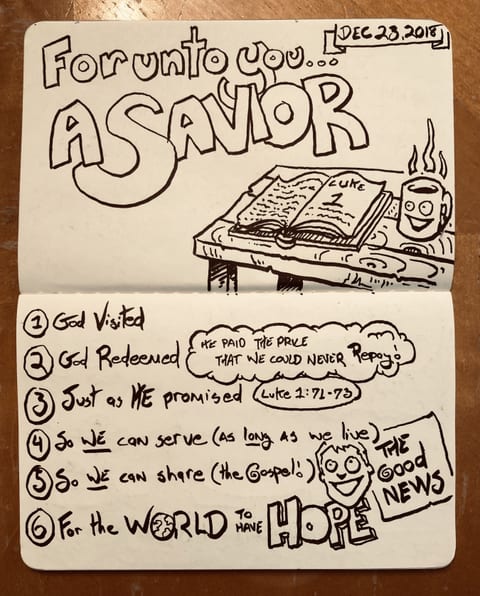 DEC 23, 2018
For unto you...
A SAVIOR
LUKE
1
1 God Visited
2 God Redeemed
HE PAID THE PRICE
THAT WE COULD NEVER Repay!
3 Just as HE promised
Luke 1:71-73
4 So WE can serve (as long as we live)
5 So WE can share (the Gospel!)
THE
Good
NEWS
6 For the WORLD TO
HAVE
HOPE